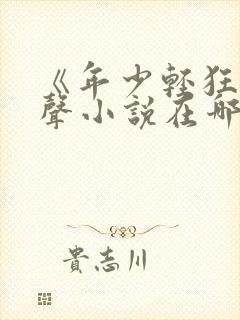 《年少轻狂
聲小說在哪
貴志川